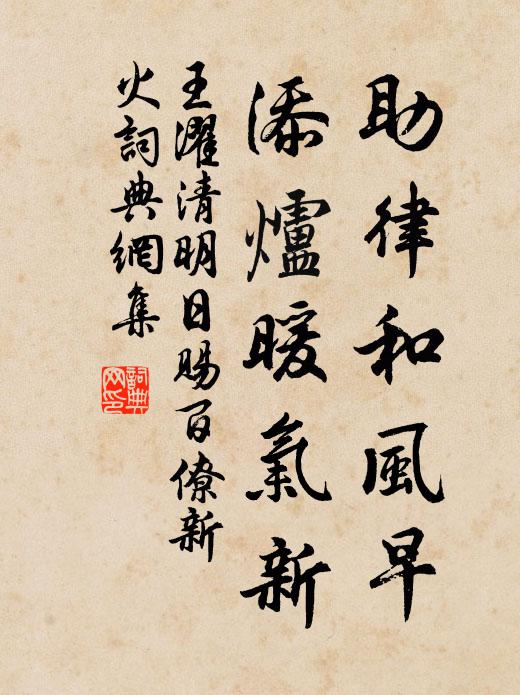 助律和風早
添爐暖氣新
王濯清明日賜百僚新
火詞典網集
詞典
网印